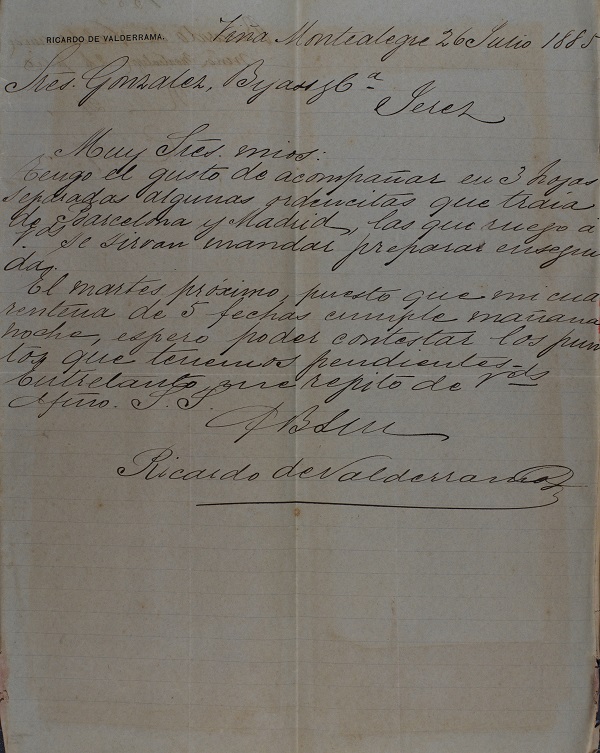 RICARDO DE VALDERRAMA.
Viña Montealegre 26 Julio 1885
Sres. Gonzalez, Byass y Cª
Jerez
Muy Sres. mios:
Tengo el gusto de acompañar en 3 hojas
separadas algunas ordencitas que traia
de Barcelona y Madrid, las que ruego á
Vds se sirvan mandar preparar ensegui
da.
El martes próximo, puesto que mi cua
rentena de 5 fechas cumple mañana
noche, espero poder contestar los pun
tos que tenemos pendientes.
Entretanto me repito de Vds
Afmo. S. S.
QBSM
Ricardo de Valderrama